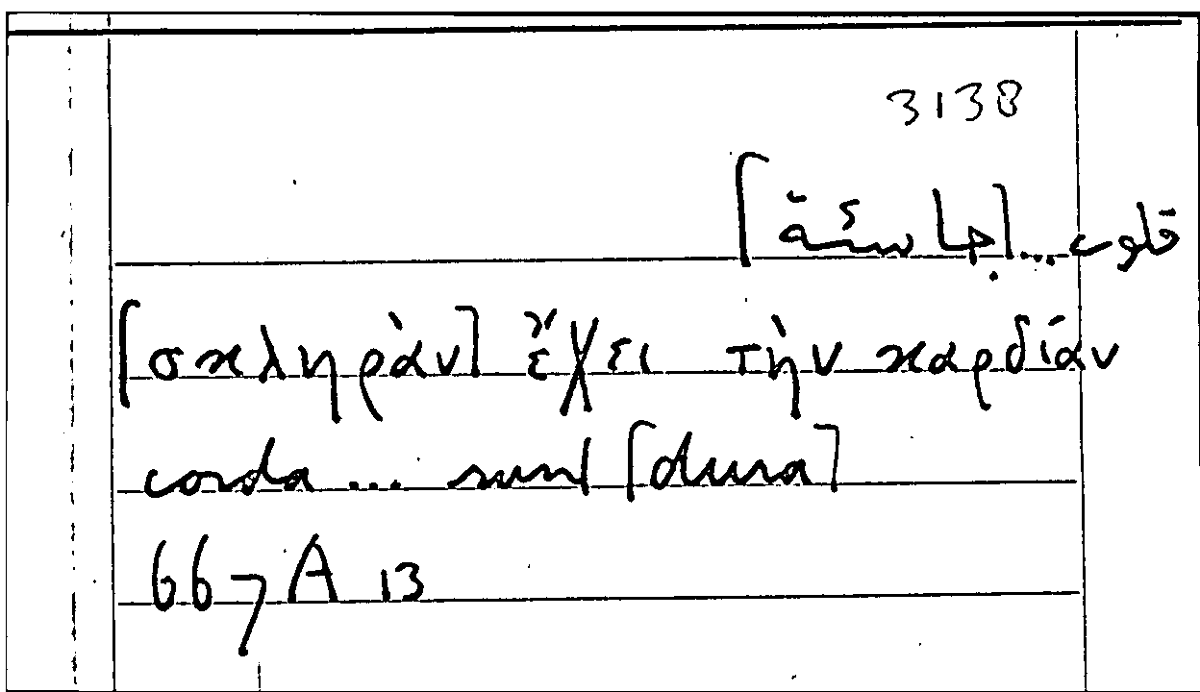 3138
قلوب...[جاسئة]
[σκληρὰν] ἔχει τὴν καρδίαν
corda ... sunt [dura]
667 A 13